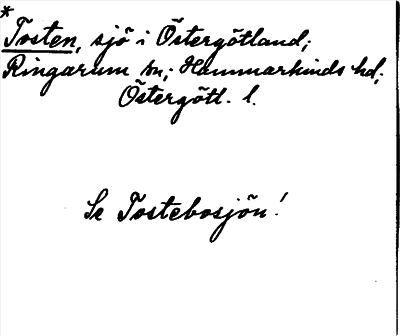 *
Tosten, sjö i Östergötland;
Ringarum sn; Hammarkinds hd;
Östergötl. l.
Se Tostebosjön!